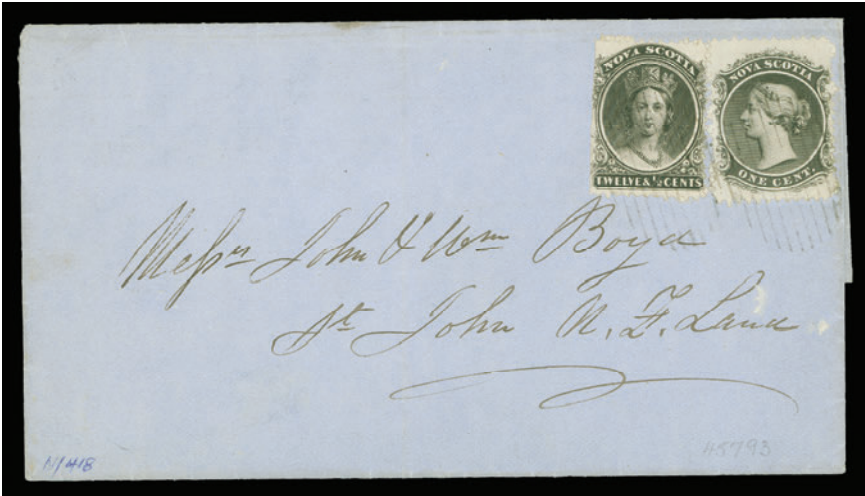 NOVA SCOTIA
TWELVE & ½ CENTS
NOVA SCOTIA
ONE CENT.
Messrs John & Wm Boyd
St. John N. F. Land
N1418
45793